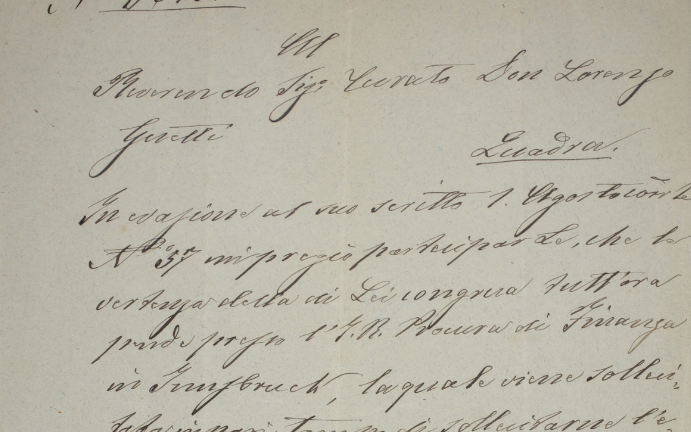 Al
Reverendo Sigr Curato Don Lorenzo
Guetti
Quadra.
In evasione al suo scritto 1. Agosto corrte
No 37 mi pregio parteciparLe, che la
vertenza della di Lei congrua tutt'ora
pende presso l'I. R. Procura di Finanza
in Innsbruck, la quale viene solleci-
tata in pari tempo di sollecitarne l'e-